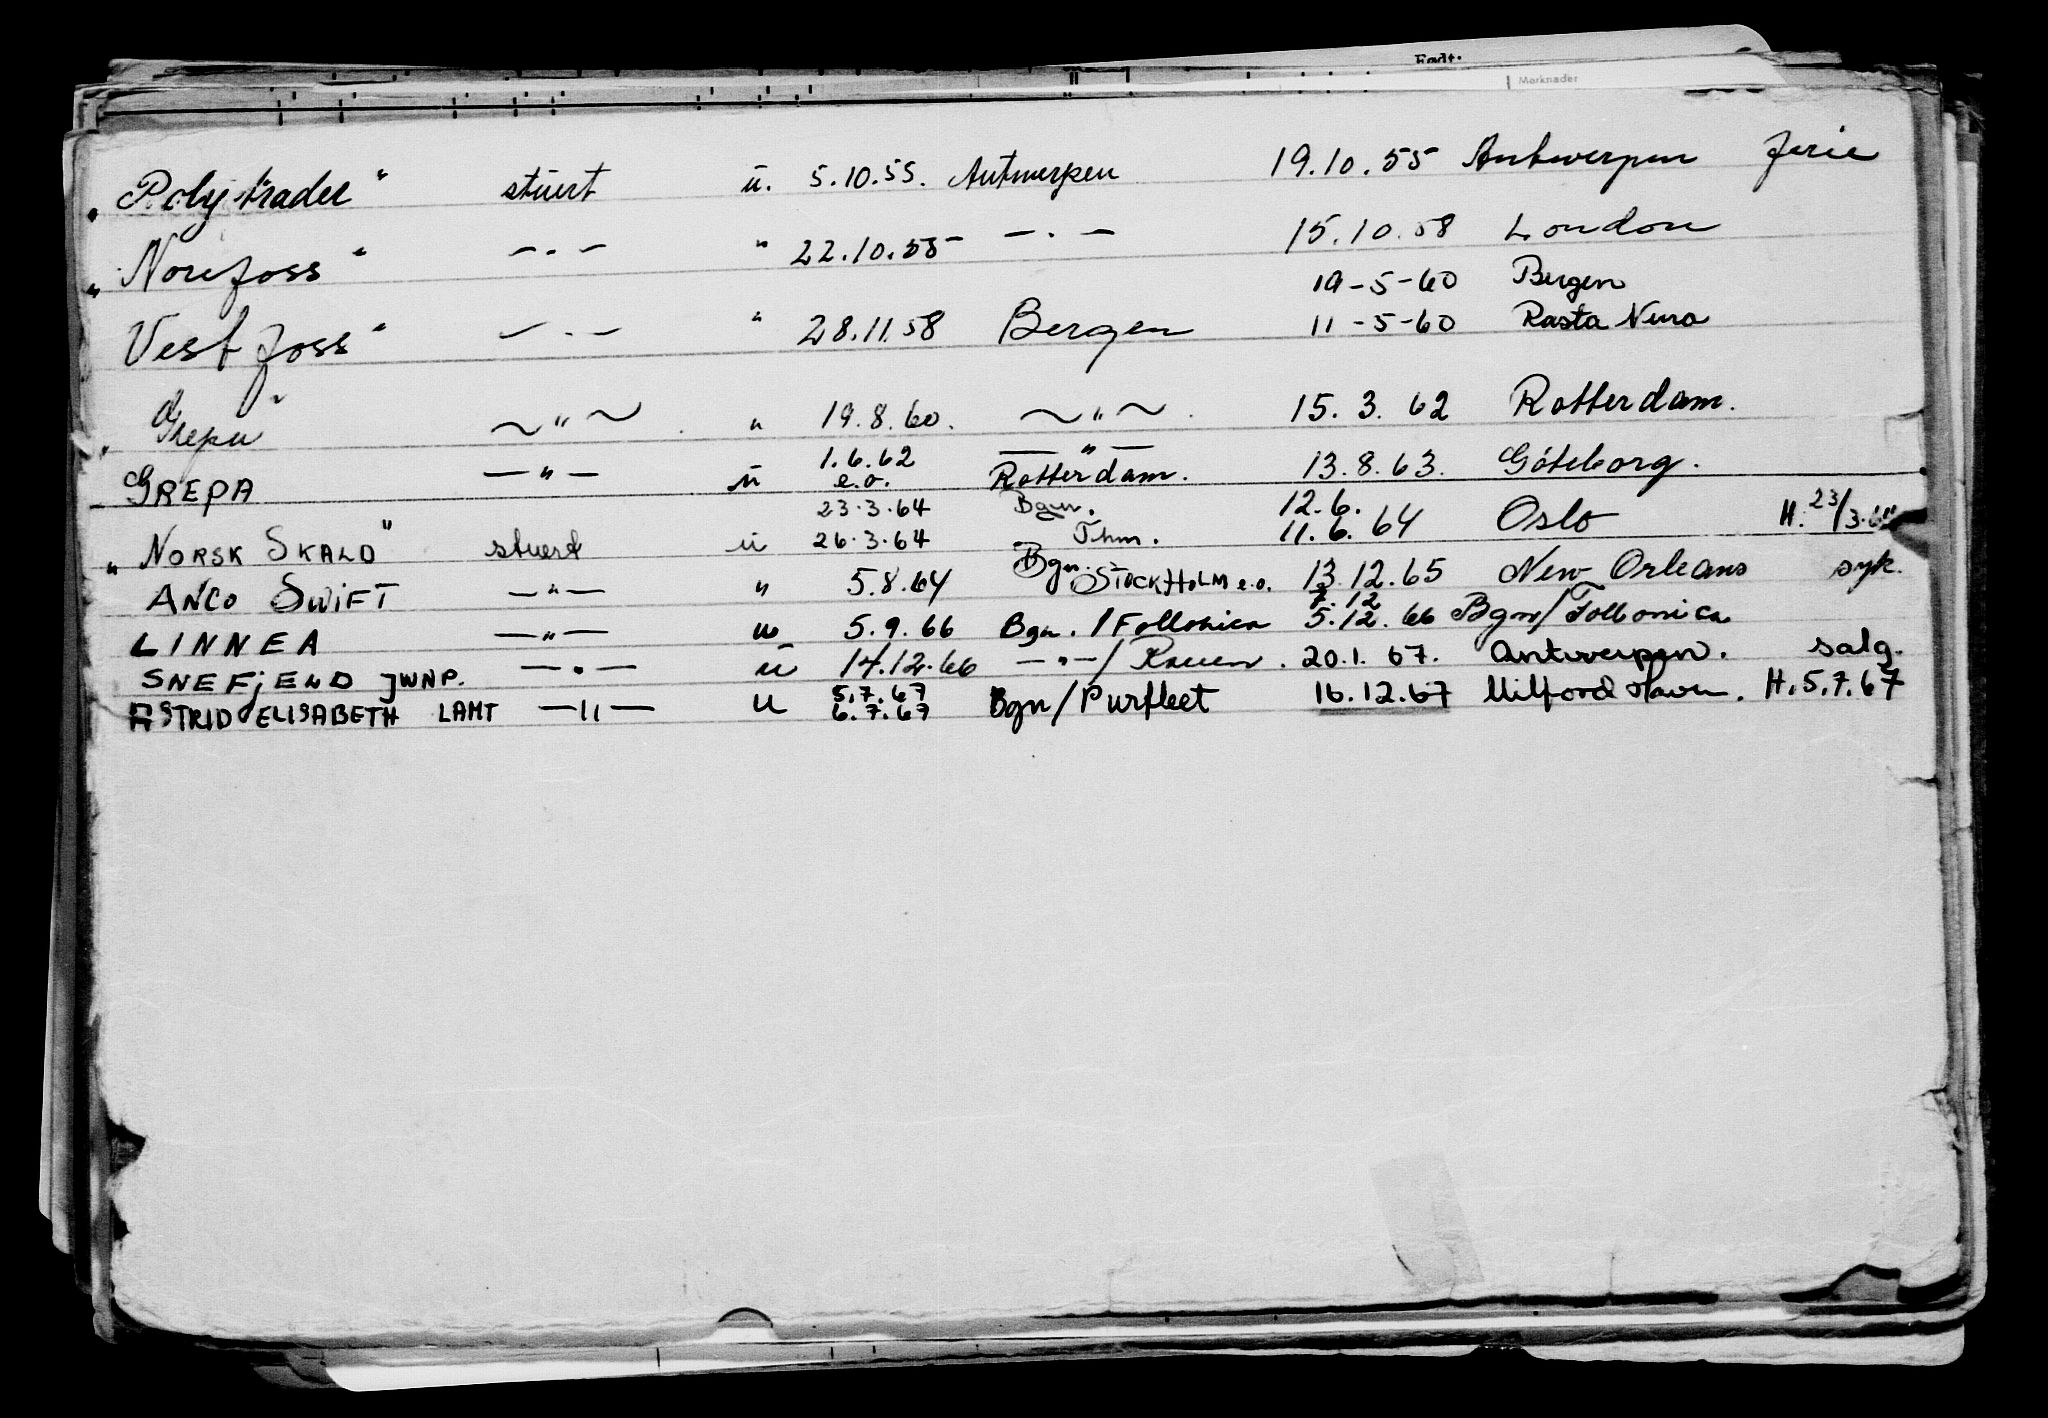 Født:
Merknader
„Polytrader" stuert u. 5.10.55. Antwerpen 19.10.55 Antwerpen ferie
„Norefoss" — · — " 22.10.55 — · — 15.10.58 London
19-5-60 Bergen
Vestfoss" — · — " 28.11.58 Bergen 11-5-60 Rasta Nura
„Grepa" ~ " ~ " 19.8.60. ~ " ~ . 15.3.62 Rotterdam.
1.6.62 — " —
GREPA — " — u e.o. Rotterdam. 13.8.63. Göteborg.
23.3.64 Bgn. 12.6.
„NORSK SKALD" stuert u 26.3.64 Thm. 11.6.64 Oslo H. 23/3.64
ANCO SWIFT — " — " 5.8.64 Bgn. STOCKHOLM e.o. 13.12.65 New Orleans syk.
7.12
LINNEA — " — u 5.9.66 Bgn. / Follonica 5.12.66 Bgn/Follonica
SNEFJELD JWNP. — " — u 14.12.66 — " — / Rouen. 20.1.67. Antwerpen. salg.
5.7.67
ASTRID ELISABETH LAMT — " — u 6.7.67 Bgn/Purfleet 16.12.67 Milford Haven. H. 5.7.67